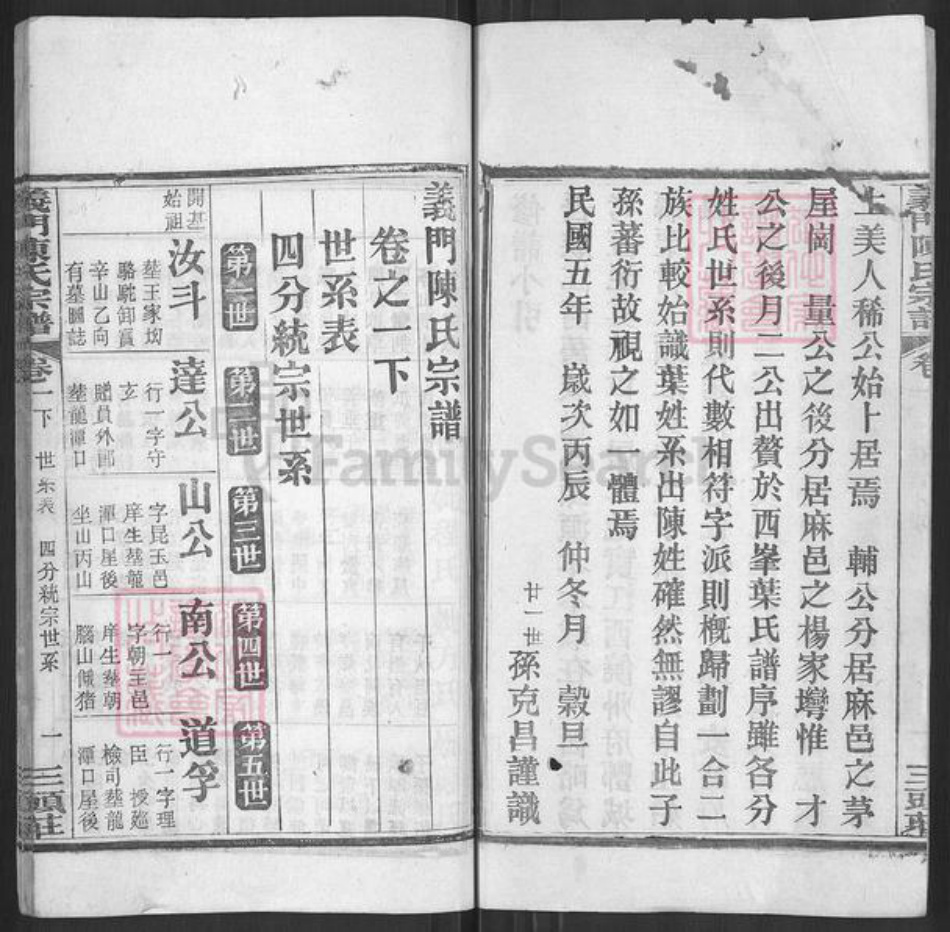 上美人稀公始卜居焉　輔公分居麻邑之茅
屋崗　量公之後分居麻邑之楊家塆惟　才
公之後月二公出贅於西峯葉氏譜序雖各分
姓氏世系則代數相符字派則概歸劃一合二
族比較始識葉姓系出陳姓確然無謬自此子
孫蕃衍故視之如一體焉
民國五年　歲次丙辰　仲冬月　穀旦
廿一世　孫克昌謹識
義門陳氏宗譜
卷之一下
世系表
四分統宗世系
第一世　第二世　第三世　第四世　第五世
開基
始祖
汝斗
塟王家坳
駱駝卸
辛山乙向
有墓圖誌
達公
行一字守
玄
贈員外郎
塟龍潭口
山公
字昆玉邑
庠生塟龍
潭口屋後
坐山丙山
南公
行一
字朝王邑
庠生塟朝
腦山佩猪
道孚
行一字理
臣　授廵
檢司塟龍
潭口屋後
義門陳氏宗譜　卷一下　世系表　四分統宗世系　一　三頭莊
FamilySearch